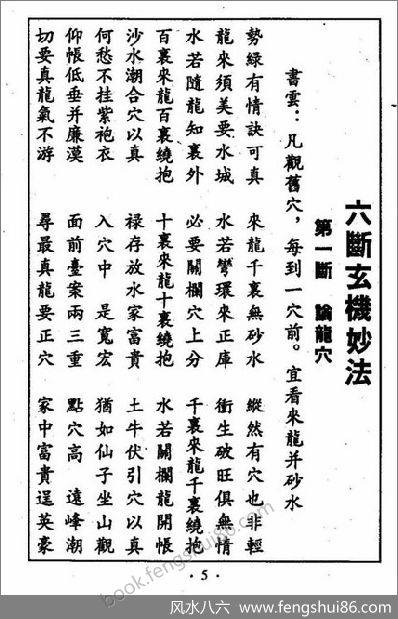 六斷玄機妙法
第一斷 論龍穴
書雲：凡觀舊穴，每到一穴前。宜看來龍并砂水
勢綠有情訣可真 來龍千裏無砂水 縱然有穴也非輕
龍來須美要水城 水若彎環來正庫 衝生破旺俱無情
水若隨龍知裏外 必要關欄穴上分 千裏來龍千裏繞抱
百裏來龍百裏繞抱 十裏來龍十裏繞抱 水若關欄龍開帳
沙水潮合穴以真 祿存放水家富貴 土牛伏引穴以真
何愁不挂紫袍衣 入穴中 是寬宏 猶如仙子坐山觀
仰帳低垂并廉漠 面前臺案兩三重 點穴高 遠峰潮
切要真龍氣不游 尋最真龍要正穴 家中富貴逞英豪
·5·
book.fengshui86.com
风水八六：www.fengshui86.com